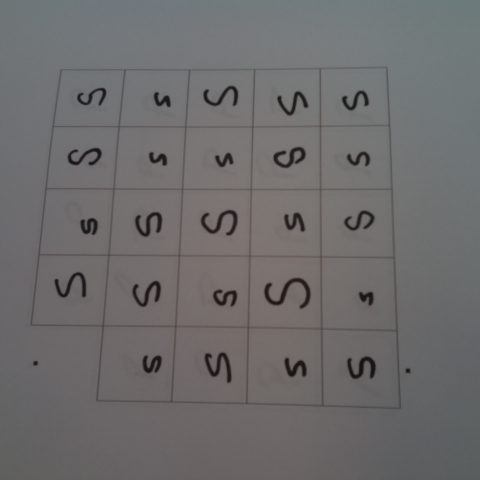 S s S S S
S s s S s
s S S s S
S S s S s
s S s S